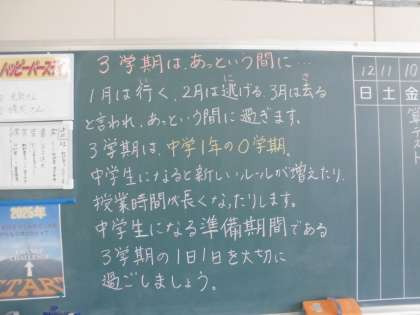 3学期は、あっという間に…
1月は行く、2月は逃げる、3月は去る
と言われ、あっという間に過ぎます。
3学期は、中学1年の0学期。
中学生になると新しいルールが増えたり、
授業時間が長くなったりします。
中学生になる準備期間である
3学期の1日1日を大切に
過ごしましょう。
12 11 10
日 土 金
ハッピーバースデイ
2025年
CHALLENGE
START